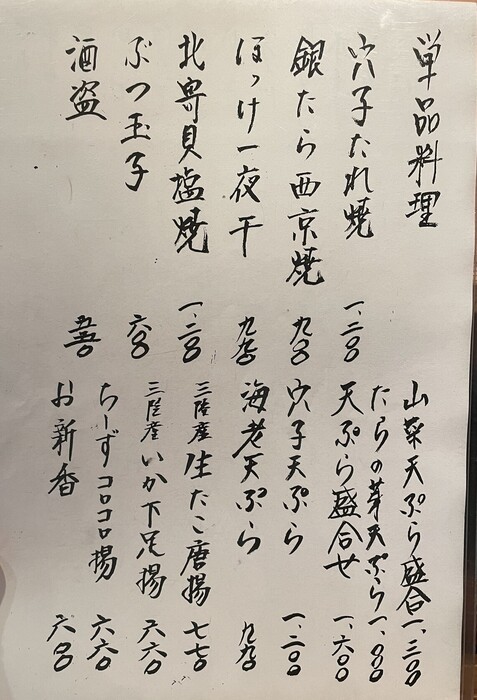 単品料理
穴子たれ焼 一、二〇〇
銀たら西京焼 九〇〇
ほっけ一夜干 九九〇
北寄貝塩焼 一、二〇〇
ぶつ玉子 六〇〇
酒盗
山菜天ぷら盛合 一、三〇〇
たらの芽天ぷら 一、〇〇〇
天ぷら盛合せ 一、六〇〇
穴子天ぷら 一、二〇〇
海老天ぷら 九九〇
三陸産生たこ唐揚 七七〇
三陸産いか下足揚 六六〇
ちーずコロコロ揚 六六〇
お新香 六〇〇